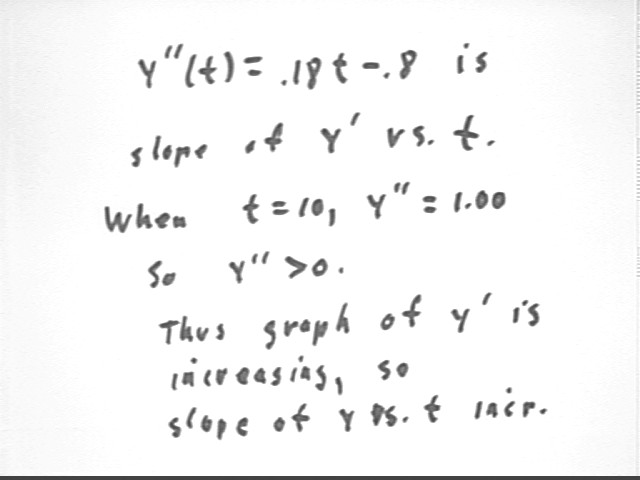 y''(t) = .18t - .8 is
slope of y' vs. t.
When t = 10, y'' = 1.00
So y'' > 0.
Thus graph of y' is
increasing, so
slope of y vs. t incr.